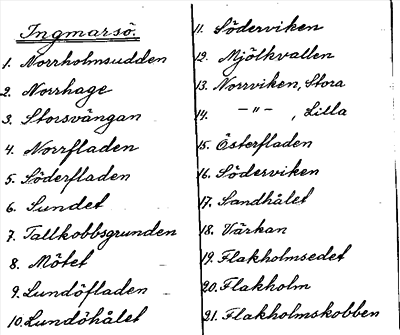 Ingmarsö.
1. Norrholmsudden
2. Norrhage
3. Storsvängan
4. Norrfladen
5. Söderfladen
6. Sundet
7. Tallkobbsgrunden
8. Mötet
9. Lundöfladen
10. Lundöhålet
11. Söderviken
12. Mjölkvallen
13. Norrviken, Stora
14. –"– , Lilla
15. Österfladen
16. Söderviken
17. Sandhålet
18. Värkan
19. Flakholmsedet
20. Flakholm
21. Flakholmskobben